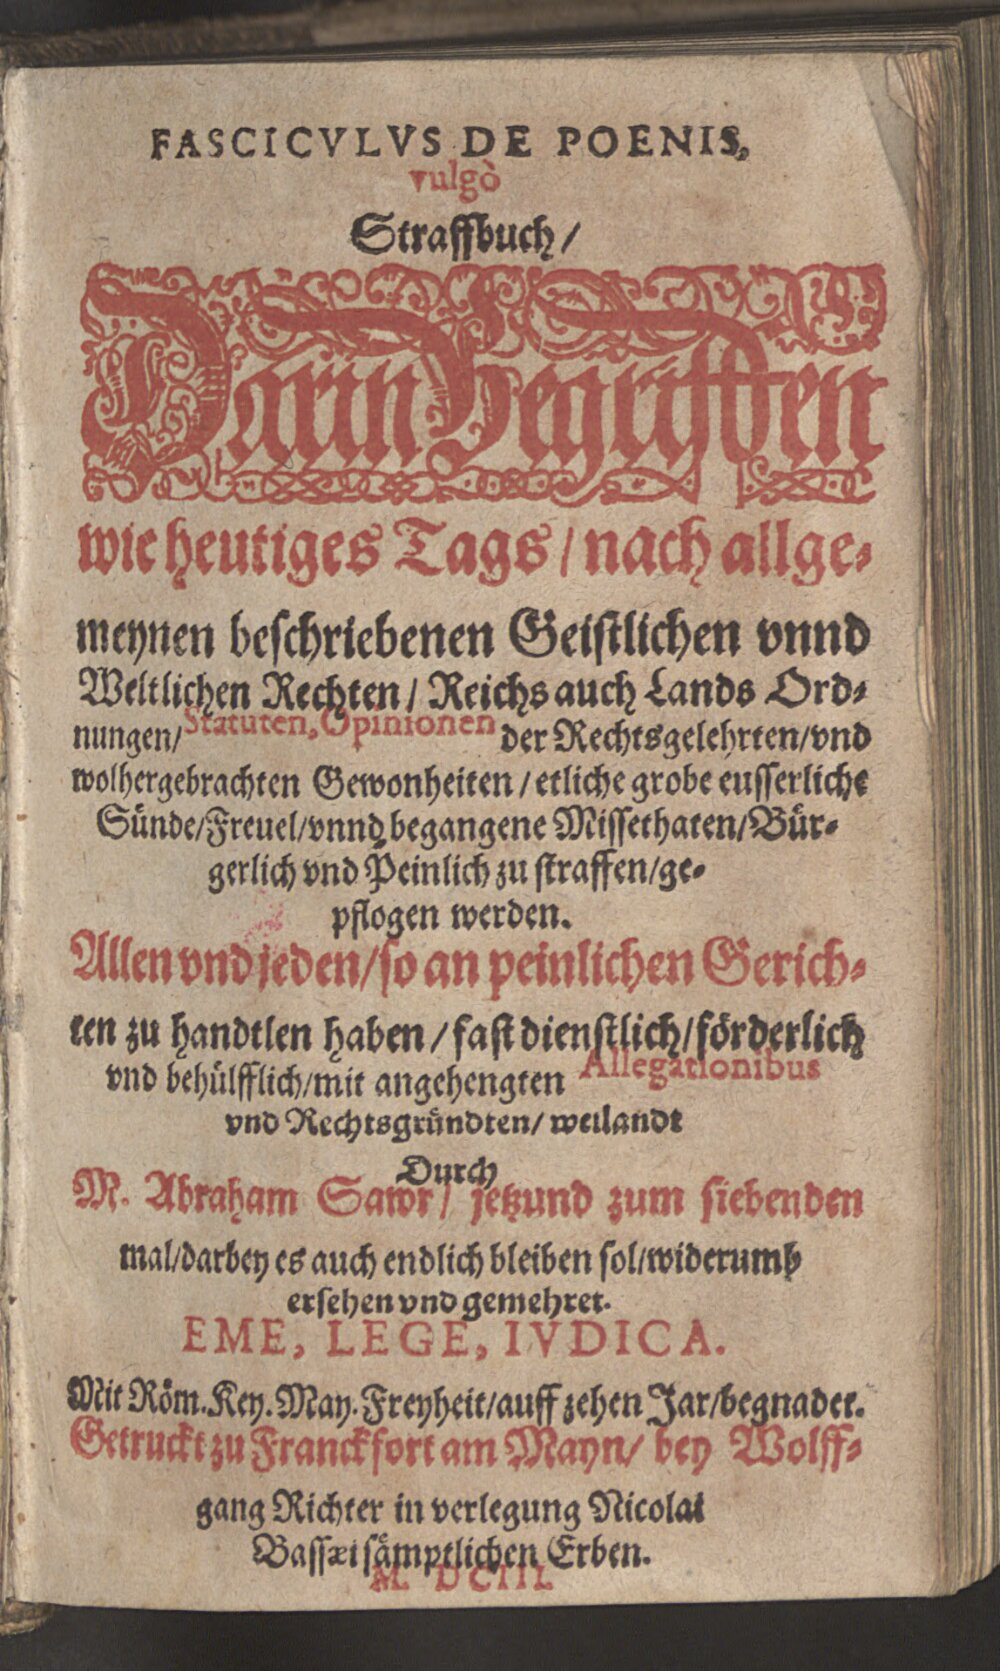 FASCICVLVS DE POENIS,
vulgò
Straffbuch/
Darin Begriffen
wie heutiges Tags/ nach allge-
meynen beschriebenen Geistlichen vnnd
Weltlichen Rechten/ Reichs auch Lands Ord-
nungen/ Statuten, Opinionen der Rechtsgelehrten/vnd
wolhergebrachten Gewonheiten/ etliche grobe eusserliche
Sünde/Freuel/vnnd begangene Missethaten/Bür-
gerlich vnd Peinlich zu straffen/ge-
pflogen werden.
Allen vnd jeden/so an peinlichen Gerich-
ten zu handtlen haben/ fast dienstlich/förderlich
vnd behülfflich/mit angehengten Allegationibus
vnd Rechtsgründten/ weilandt
Durch
M. Abraham Sawr/ jetzund zum siebenden
mal/darbey es auch endlich bleiben sol/widerumb
ersehen vnd gemehret.
EME, LEGE, IVDICA.
Mit Röm.Key.May.Freyheit/auff zehen Jar/begnadet.
Getruckt zu Franckfort am Mayn/ bey Wolff-
gang Richter in verlegung Nicolai
Bassæi sämptlichen Erben.
M. DCIII.